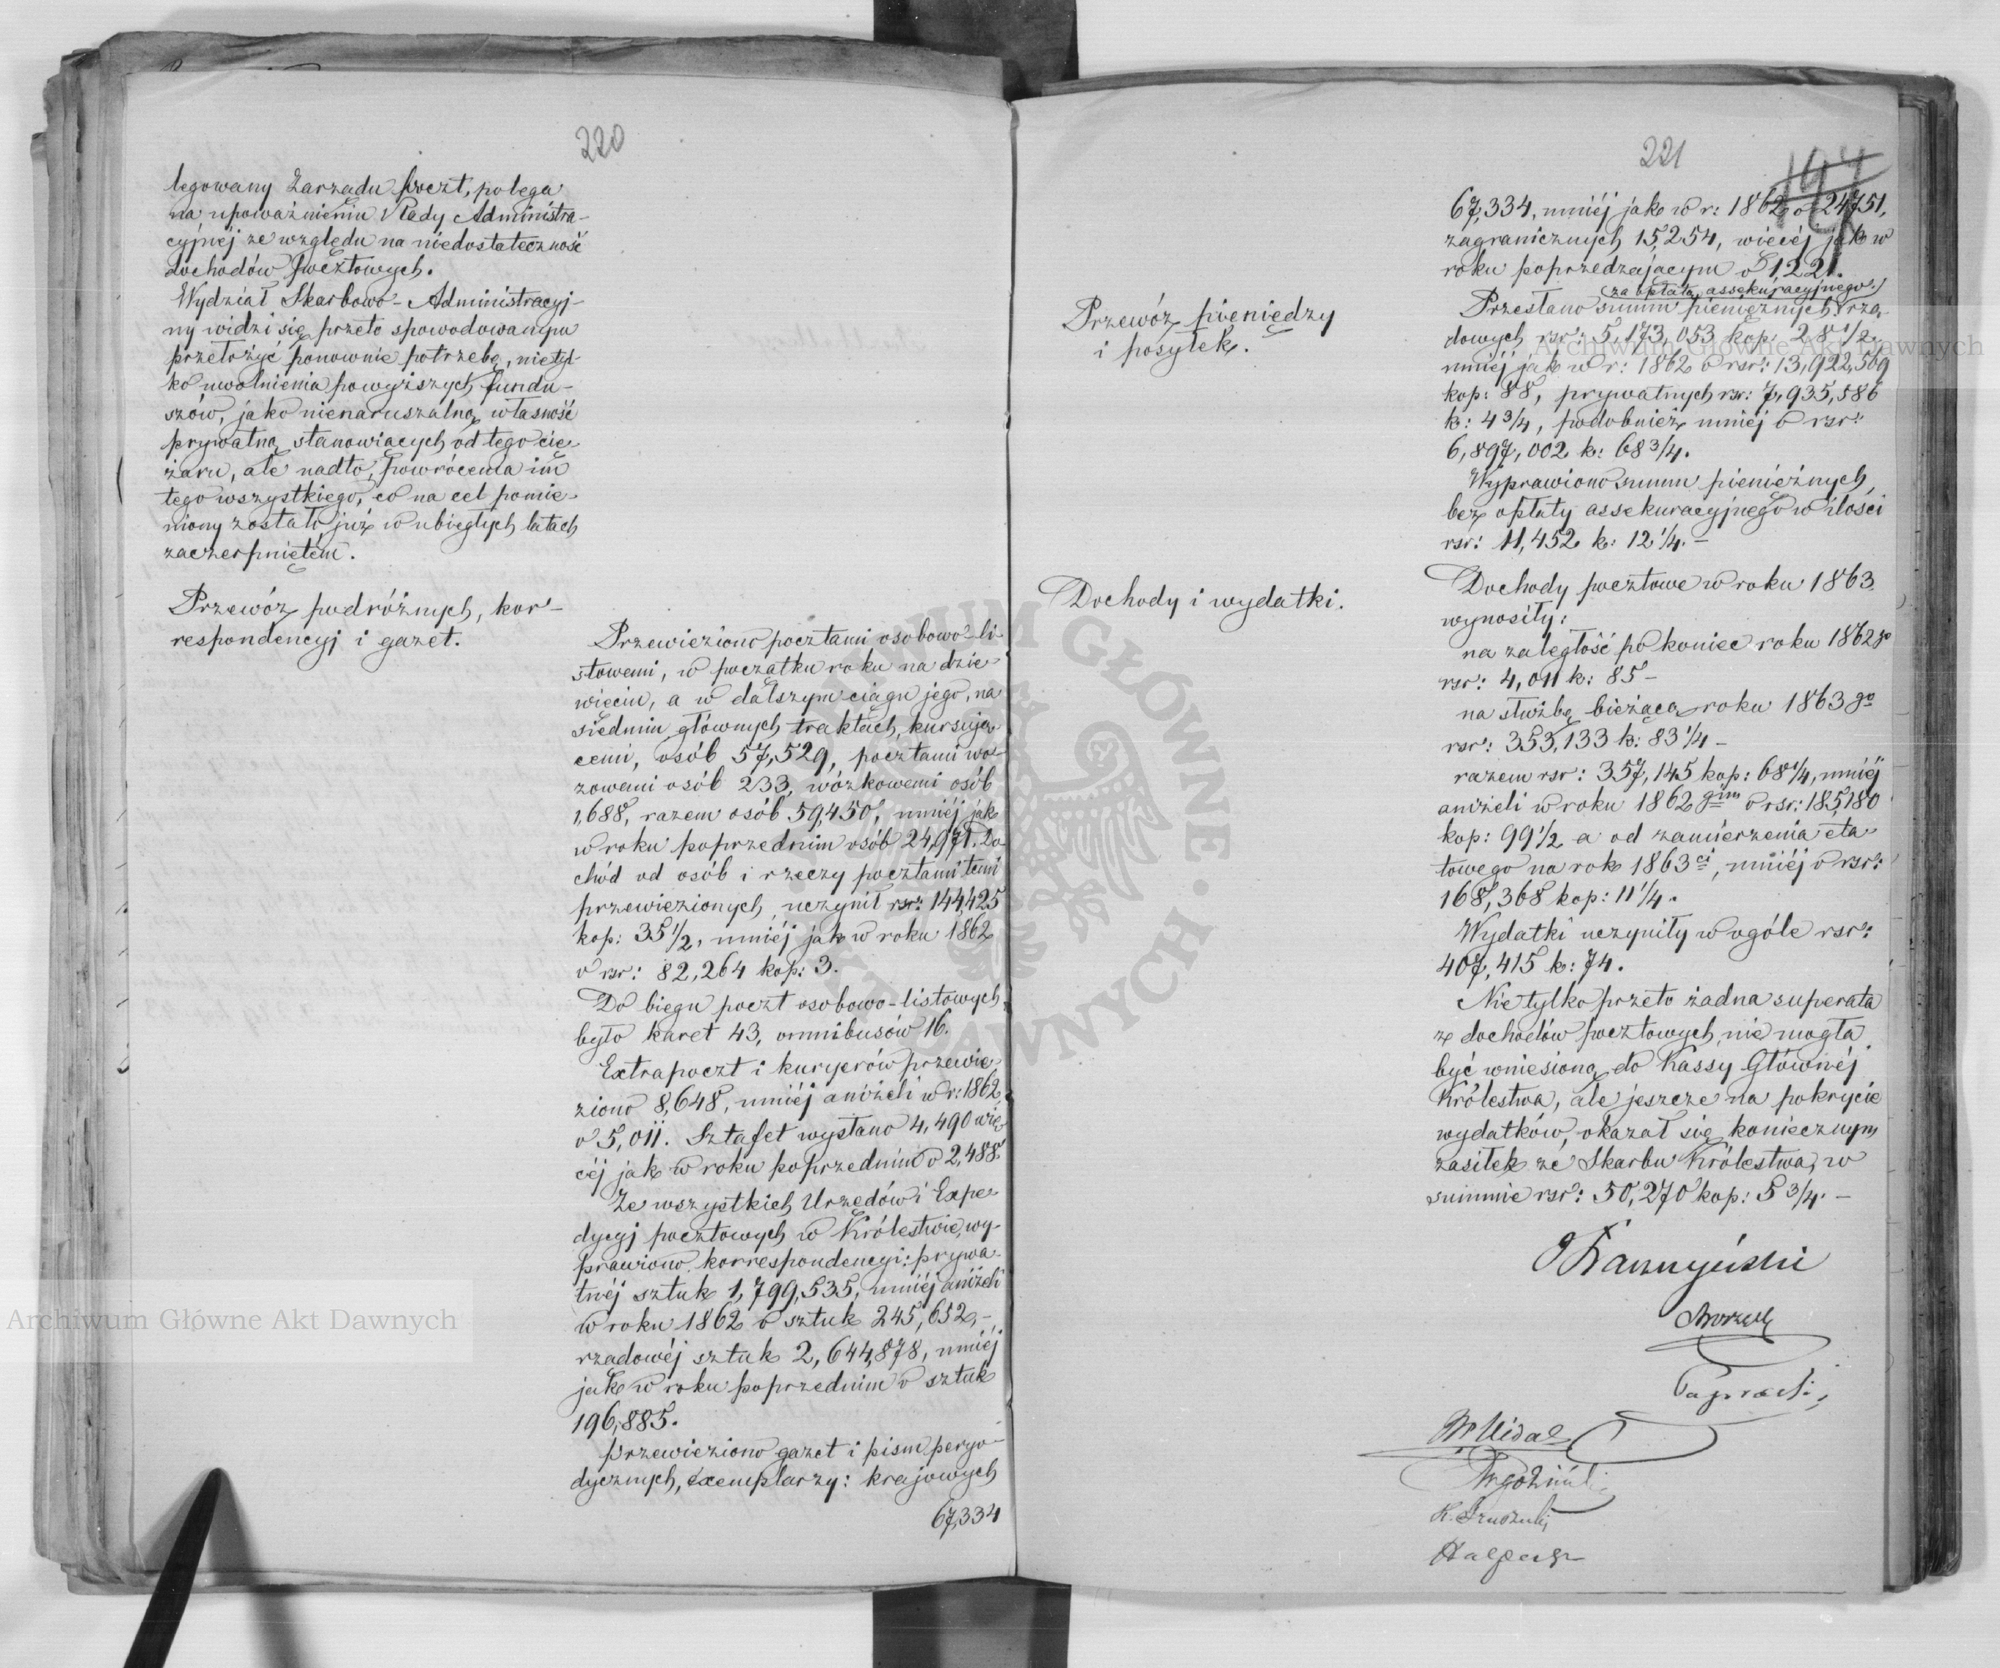 220
legowany Zarządu Poczt, polega
na upoważnieniu Rady Administra-
cyjnéj ze względu na niedostateczność
dochodów pocztowych.
Wydział Skarbowo-Administracyj-
ny widzi się przeto spowodowanym
przełożyć ponownie potrzebę, nietyl-
ko uwolnienia powyższych fundu-
szów, jako nienaruszalną własność
prywatną stanowiących od tego cię-
żaru, ale nadto, powrócenia im
tego wszystkiego, co na cel pomie-
niony zostało już w ubiegłych latach
zaczerpniętém.
Przewóz podróżnych, kor-
respondencyj i gazet.
Przewieziono pocztami osobowo-li-
stowemi, w początku roku na dzie-
więciu, a w dalszym ciągu jego, na
siedmiu głównych traktach, kursują-
cemi, osób 57,529, pocztami wo-
zowemi osób 233, wózkowemi osób
1,688, razem osób 59,450, mniéj jak
w roku poprzednim osób 24,971. Do-
chód od osób i rzeczy pocztami temi
przewiezionych, uczynił rsr: 144,425
kop: 35 1/2, mniéj jak w roku 1862
o rsr: 82,264 kop: 3.
Do biegu poczt osobowo-listowych
było karet 43, omnibusów 16.
Extrapoczt i kuryerów przewie-
ziono 8,648, mniéj aniżeli w r: 1862
o 5,011. Sztafet wysłano 4,490 wię-
céj jak w roku poprzednim o 2,488.
Ze wszystkich Urzędów i Expe-
dycyj pocztowych w Królestwie, wy-
prawiono korrespondencyi: prywa-
tnéj sztuk 1,799,535, mniéj aniżeli
w roku 1862 o sztuk 245,652,-
rządowéj sztuk 2,644,878, mniéj
jak w roku poprzednim o sztuk
196,885.
Przewieziono gazet i pism peryo-
dycznych, exemplarzy: krajowych
67,334
221
67,334, mniéj jak w r: 1862 o 24751,
zagranicznych 15,254, więcéj jak w
roku poprzedzającym o 1,221.
za opłatą assekuracyjnego
Przesłano summ pieniężnych rzą-
dowych rsr: 5,173,053 kop: 28 1/2
mniéj jak w r: 1862 o rsr: 13,922,569
kop: 88, prywatnych rsr: 7,935,586
k: 4 3/4, podobnież mniéj o rsr:
6,897,002 k: 68 3/4.
Wyprawiono summ pieniężnych,
bez opłaty assekuracyjnego w ilości
rsr: 11,452 k: 12 1/4.-
Przewóz pieniędzy
i posyłek.
Dochody i wydatki.
Dochody pocztowe w roku 1863
wynosiły:
na zaległość po koniec roku 1862go
rsr: 4,011 k: 85-
na służbę bieżącą roku 1863go
rsr: 353,133 k: 83 1/4-
razem rsr: 357,145 kop: 68 1/4, mniéj
aniżeli w roku 1862gim o rsr: 185,180
kop: 99 1/2 a od zamierzenia eta-
towego na rok 1863ci, mniéj o rsr:
168,368 kop: 11 1/4.
Wydatki uczyniły w ogóle rsr:
407,415 k: 74.
Nietylko przeto żadna superata
z dochodów pocztowych, nie mogła
być wniesioną do Kassy Głównéj
Królestwa, ale jeszcze na pokrycie
wydatków, okazał się koniecznym
zasiłek ze Skarbu Królestwa, w
summie rsr: 50,270 kop: 5 3/4.-
Archiwum Główne Akt Dawnych
Archiwum Główne Akt Dawnych
ARCHIWUM GŁÓWNE AKT DAWNYCH